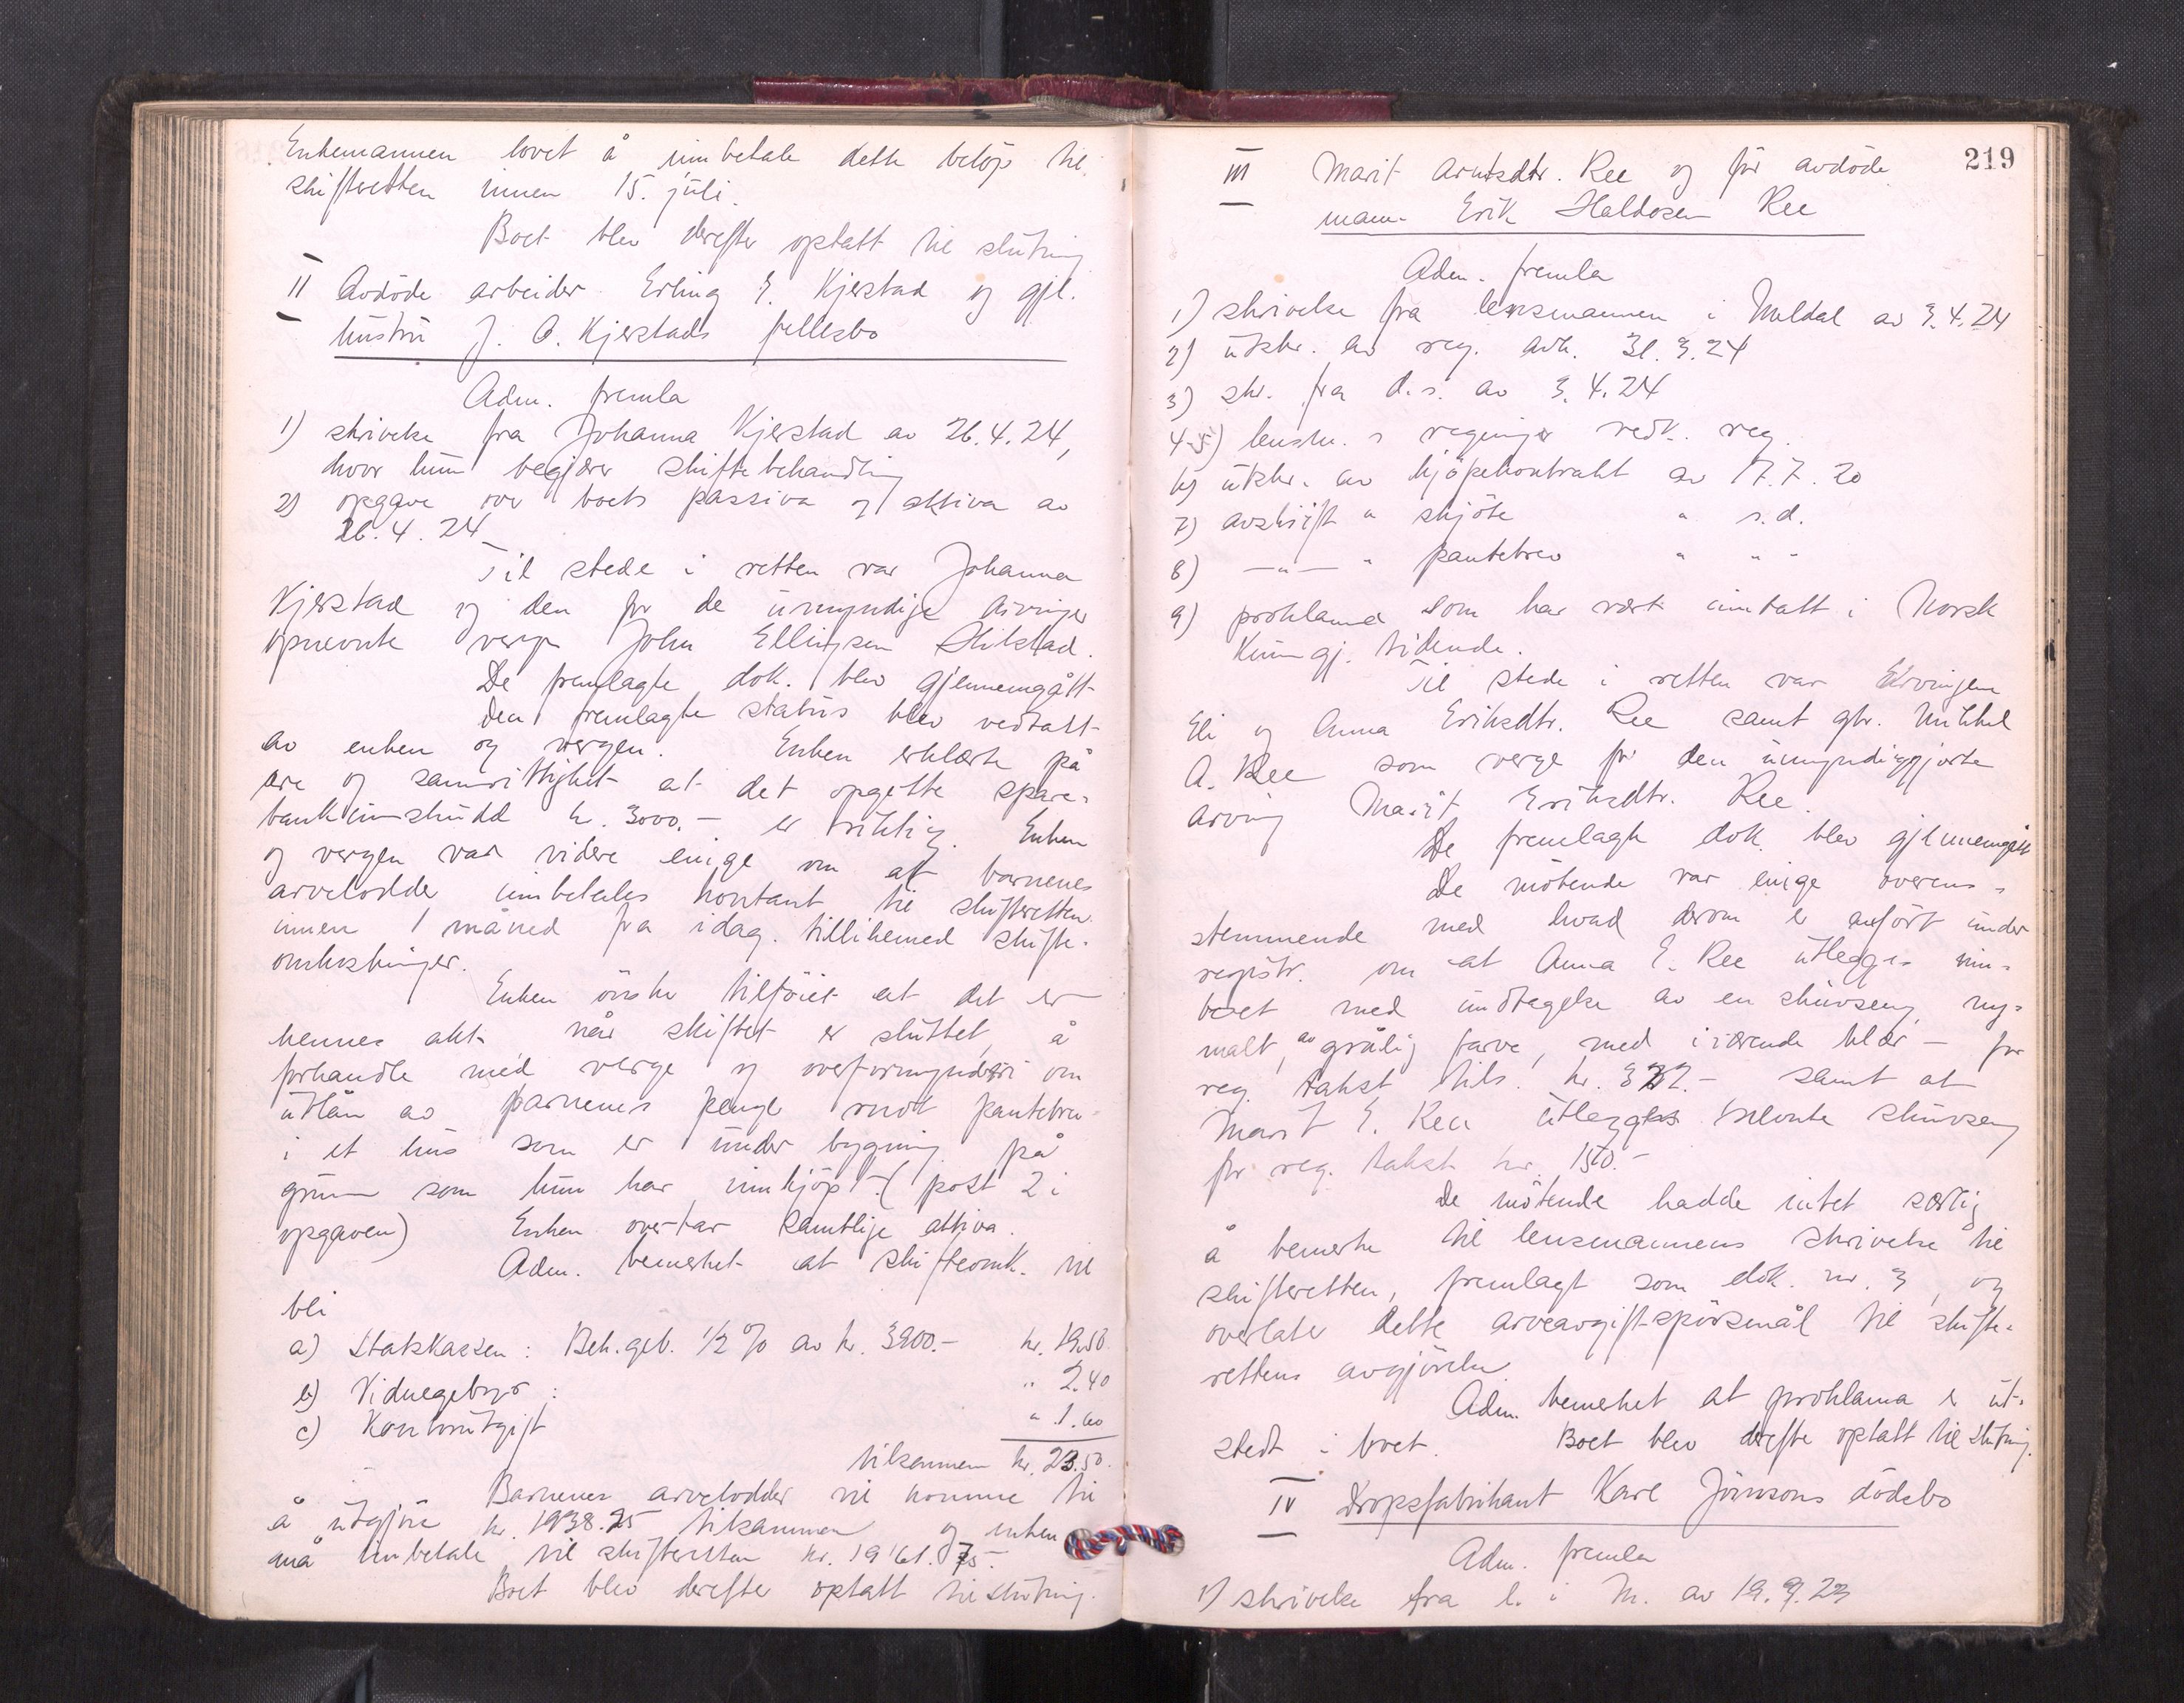 Enkemannen lovet å innbetale dette beløp til
skifteretten innen 15. juli.
Boet blev derefter optatt til slutning
II Avdöde arbeider Erling E. Kjerstad og gjl.
hustru J. O. Kjerstads fellesbo
Adm. fremla
1) skrivelse fra Johanna Kjerstad av 26.4.24,
hvor hun begjærer skiftebehandling
2) opgave over boets passiva og aktiva av
26.4.24
Til stede i retten var Johanna
Kjerstad og den for de umyndige arvinger
opnevnte verge John Ellingsen
De fremlagte dok. blev gjennemgått
Den fremlagte status blev vedtatt
av enken og vergen. Enken erklærte på
ære og samvittighet at det opgitte spare-
bankinnskudd kr. 3000.- er riktig. Enken
og vergen var videre enige om at barnenes
arvelodder innbetales kontant til skifteretten
innen 1 måned fra idag tillikemed skifte-
omkostninger.
Enken ønsker tilföiet at det er
hennes akt når skiftet er sluttet, å
forhandle med verge og overformynderi om
utlån av barnenes penge mot pantebrev
i et hus som er under bygning på
grunn som hun har innkjöpt (post 2 i
opgaven) Enken overtar samtlige aktiva.
Adm. bemerket at skifteomk. vil
bli
a) Statskassen: Beh.geb. 1/2 % av kr. 3900.- kr. 19.50
b) Vidnegebyr: " 2.40
c) Kontorutgift " 1.60
tilsammen kr. 23.50.
Barnenes arvelodder vil komme til
å utgjöre kr. 1938.25 tilsammen og enken
må innbetale til skifteretten kr. 1961.75.
Boet blev derefter optatt til slutning.
219
III Marit Arntsdtr. Ree og før avdöde
mann Erik Haldosen Ree
Adm. fremla
1) skrivelse fra lensmannen i Meldal av 3.4.24
2) utskr. av reg. avh. 31.3.24
3) skr. fra d.s. av 3.4.24
4-5) lensm.s regninger vedk. reg.
6) utskr. av kjöpekontrakt av 17.7.20
7) avskrift " skjöte " s.d.
8) —"— " pantebrev " " "
9) proklama som har vært inntatt i Norsk
Kunngj. tidende.
Til stede i retten var arvingene
Eli og Anna Eriksdtr. Ree samt gbr. Mikkel
A. Ree som verge for den umyndiggjorte
arving Marit Eriksdtr. Ree.
De fremlagte dok. blev gjennemgått
De mötende var enige overens-
stemmende med hvad derom er anfört under
registr. om at Anna E. Ree utlegges inn-
boet med undtagelse av en skuvseng, ny-
malt, av grålig farve, med iværende klær — for
reg. takst tils. kr. 332.- samt at
Marit E. Ree utlegges nevnte skuvseng
for reg. takst kr. 150.-
De mötende hadde intet særlig
å bemerke til lensmannens skrivelse til
skifteretten, fremlagt som dok. nr. 3, og
overlater dette arveavgiftspörsmål til skifte-
rettens avgjörelse
Adm. bemerket at proklama er ut-
stedt i boet. Boet blev derefter optatt til slutning.
IV Dropsfabrikant Karl Jönsons dödsbo
Adm. fremla
1) skrivelse fra l. i M. av 19.9.23